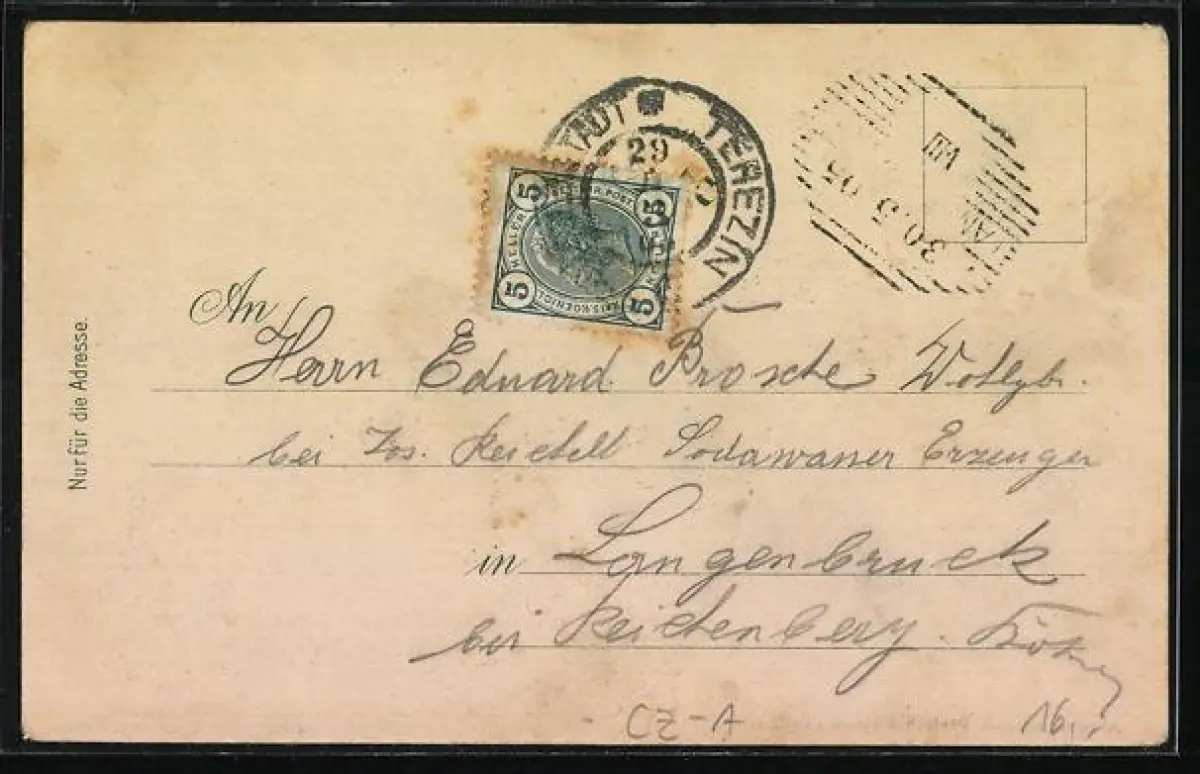 TADT TEREZIN
29
30.5.05
VIII
5 5
HELLER
5 5
An
Herrn Eduard Prosche
bei Jos. Reichelt Sodawasser Erzeuger
in Langenbruck
bei Reichenberg.
Nur für die Adresse.
CZ-A
16